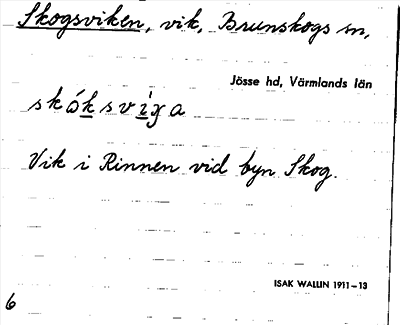 Skogsviken, vik, Brunskogs sn,
Jösse hd, Värmlands län
Vik i Rinnen vid byn Skog.
ISAK WALLIN 1911–13
6